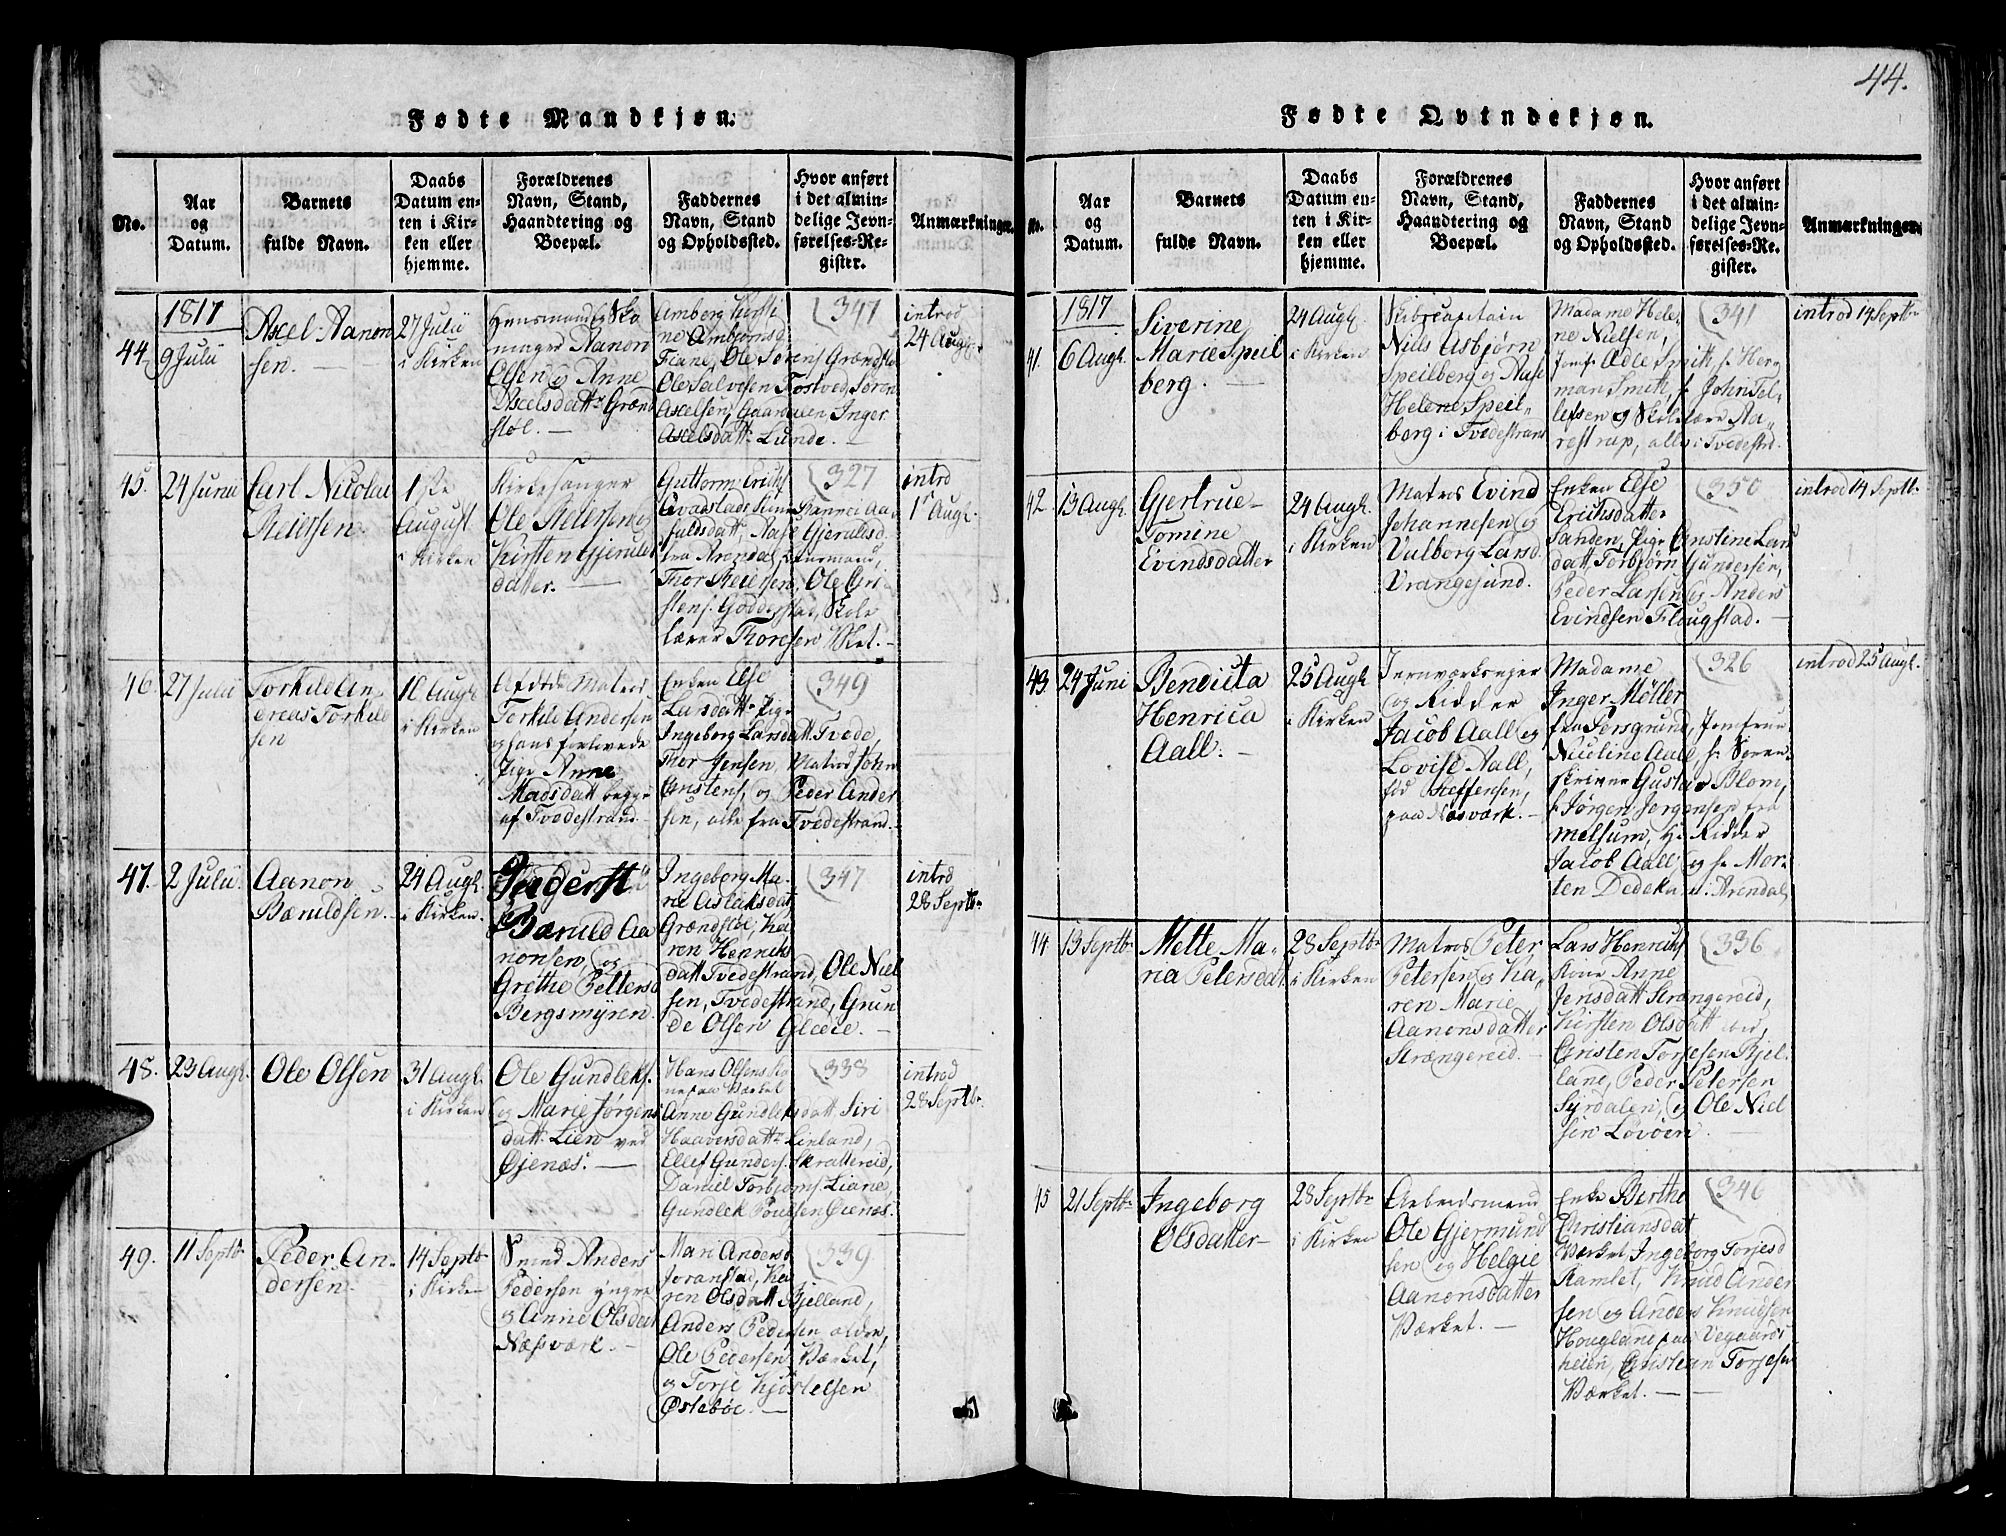 44.
Fødte Mandkjøn.
No.
Aar
og
Datum.
Barnets
fulde Navn.
Daabs
Datum en-
ten i Kir-
ken eller
hjemme.
Forældrenes
Navn, Stand,
Haandtering og
Boepæl.
Faddernes
Navn, Stand
og Opholdssted.
Hvor anført
i det almin-
delige Jevn-
førelses-Re-
gister.
Anmærkninger.
1817
44
9 Julii
Ascel Aanon
sen. —
27 Julii
i Kirken
Huusmand Sko
mager Aanon
Olsen og Anne
Ascelsdattr Grænd
støl. —
Amberg Kirsti
ne Ambjørnsd
Fiane, Ole Sørens Grændstøl
Ole Salvesen Fostved, Søren
Ascelsen, Gaardalen Inger
Ascelsdatt. Lunde. —
347
introd
24 Augs.
45.
24 Junii
Carl Nicolai
Reiersen
1ste
August
i Kirken
Kirkesanger
Ole Reiersen og
Kirsten Gjeruld
datter. —
Guttorm Erichs
Thor Reiersen, Ole Cri
stens. Goddestad, Skole
lærer Thoresen
327
introd
1 Augs.
46
27 Julii
Torkild An
dreas Torkild
sen
10 Augs
i Kirken
Afdøde Matros
Torkild Andersen
og hans forlovede
Pige Anne
Madsdatt begge
af Tvedestrand
Enken Else
Larsdattr Pige
Ingeborg Larsdatt. Tvede,
Thor Jensen, Matros John
Cristens, og Peder Ander
sen, alle fra Tvedestrand. —
349
47.
2 Julii
Aanon
Bærulfsen. —
24 Augs.
i Kirken.
Inderst
Bæruld Aa
nonsen, og
Grethe Pettersd
Bergsmyren.
Ingeborg Ma-
rie Aslaksdat
Grændstøl, Ka
ren Henriks
datt Tvedestrand, Ole Niel
sen, Tvedestrand, Grun
de Olsen Glede. —
347
introd
28 Septbr
48.
23 Augs.
Ole Olsen
31 Augs.
i Kirken
Ole Gundleks.
og Marie Jørgens
datt. Lien ved
Øjenæs. —
Hans Olsens Ko
ne paa Værket
Anne Gundleksdatt. Siri
Haaversdattr Linland,
Ellef Gunders. Skrattereid,
Daniel Torbjørns. Liane,
Gundlek Poulsen Øienæs.
338
introd
28 Septbr.
49.
11 Septbr
Peder An-
dersen.
14 Septbr
i Kirken
Smed Anders
Pedersen yngre
og Anne Olsdatt
Næsværk. —
Mari Andersd
Joranstad, Ka
ren Olsdatt Bjelland,
Anders Pedersen ældre,
Ole Pedersen Værket,
og Torje Kjøstelsen
Østebøe. —
339
Fødte Qvindekjøn.
No.
Aar
og
Datum.
Barnets
fulde Navn.
Daabs
Datum en-
ten i Kir-
ken eller
hjemme.
Forældrenes
Navn, Stand,
Haandtering og
Boepæl.
Faddernes
Navn, Stand
og Opholdssted.
Hvor anført
i det almin-
delige Jevn-
førelses-Re-
gister.
Anmærkninger.
1817
41.
6 Augs.
Siverine
Marie Speil
berg. —
24 Augs.
i Kirken
Skibscapitain
Niels Asbjørn
Speilberg og Aase
Helene Speil-
berg i Tvedestrand
Madame Hele-
ne Nielsen,
Jomf. Adle Smitt hr. Her
man Smith, hr. John Tel-
lefsen og Skolelære Aa-
restrup, alle i Tvedestrd.
341
introd 14 Septbr
42.
13 Augs.
Gjertrue
Tomine
Evindsdatter
24 Augs.
i Kirken
Matros Evind
Johannesen og
Valborg Larsd.
Vrangesund.
Enken Else
Erichsdatter
Sanden, Pige Cristine Lars
datt, Torbjørn Gundersen,
Peder Larsen og Anders
Evindsen Flougstad. —
350
introd 14 Septbr
43.
24 Juni
Bendicta
Henrica
Aall. —
25 Augs
i Kirken
Jernværkseyer
og Ridder
Jacob Aall og
Lovise Aall,
fød Steffensen,
paa Næsværk. —
Madame
Inger Møller
fra Porsgrund, Jomfrue
Nicoline Aall hr. Soren-
skriver Gustav Blom,
hr Jørgen Jørgensen fra
Melsum, Hr Ridder
Jacob Aall og hr. Mor-
ten Dedekam. Arendal
326
introd 25 Augs.
44
13 Septbr
Mette Ma-
ria Petersdat
28 Septbr
i Kirken
Matros Peter
Petersen og Ka-
ren Marie
Aanonsdatter
Strængereid. —
Lars Henriks
Kone Anne
Jensdatt Strængereid,
Kirsten Olsdatt ibid,
Cristen Torjesen Bjel-
land, Peder Petersen
Syrdalen, og Ole Niel
sen Lovøen. —
336
45
21 Septbr
Ingeborg
Olsdatter
28 Septbr
i Kirken
Arbeidsmand
Ole Gjermund
sen og Helgie
Aanonsdatter
Værket. —
Enke Berthe
Christiansdat
Værket Ingeborg Torjesd
Ramlet, Knud Ander
sen og Anders Knudsen
Hougland paa Vegaards-
heien, Cristian Torjesen
Værket. —
346